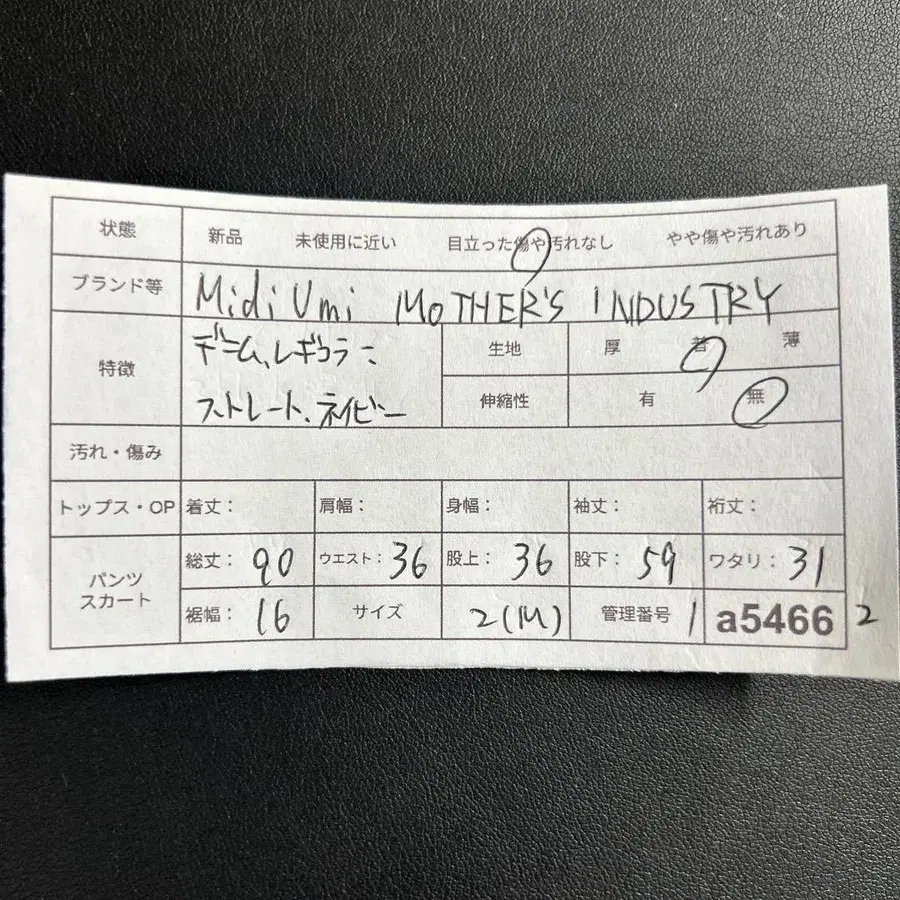 状態 新品 未使用に近い 目立った傷や汚れなし やや傷や汚れあり
ブランド等 MidiUmi MOTHER'S INDUSTRY
特徴 デニム、レギュラー
ストレート、ネイビー
生地 厚 普 薄
伸縮性 有 無
汚れ・傷み
トップス・OP 着丈： 肩幅： 身幅： 袖丈： 裄丈：
パンツ スカート
総丈：90 ウエスト：36 股上：36 股下：59 ワタリ：31
裾幅：16 サイズ 2(M) 管理番号 1 a5466 2